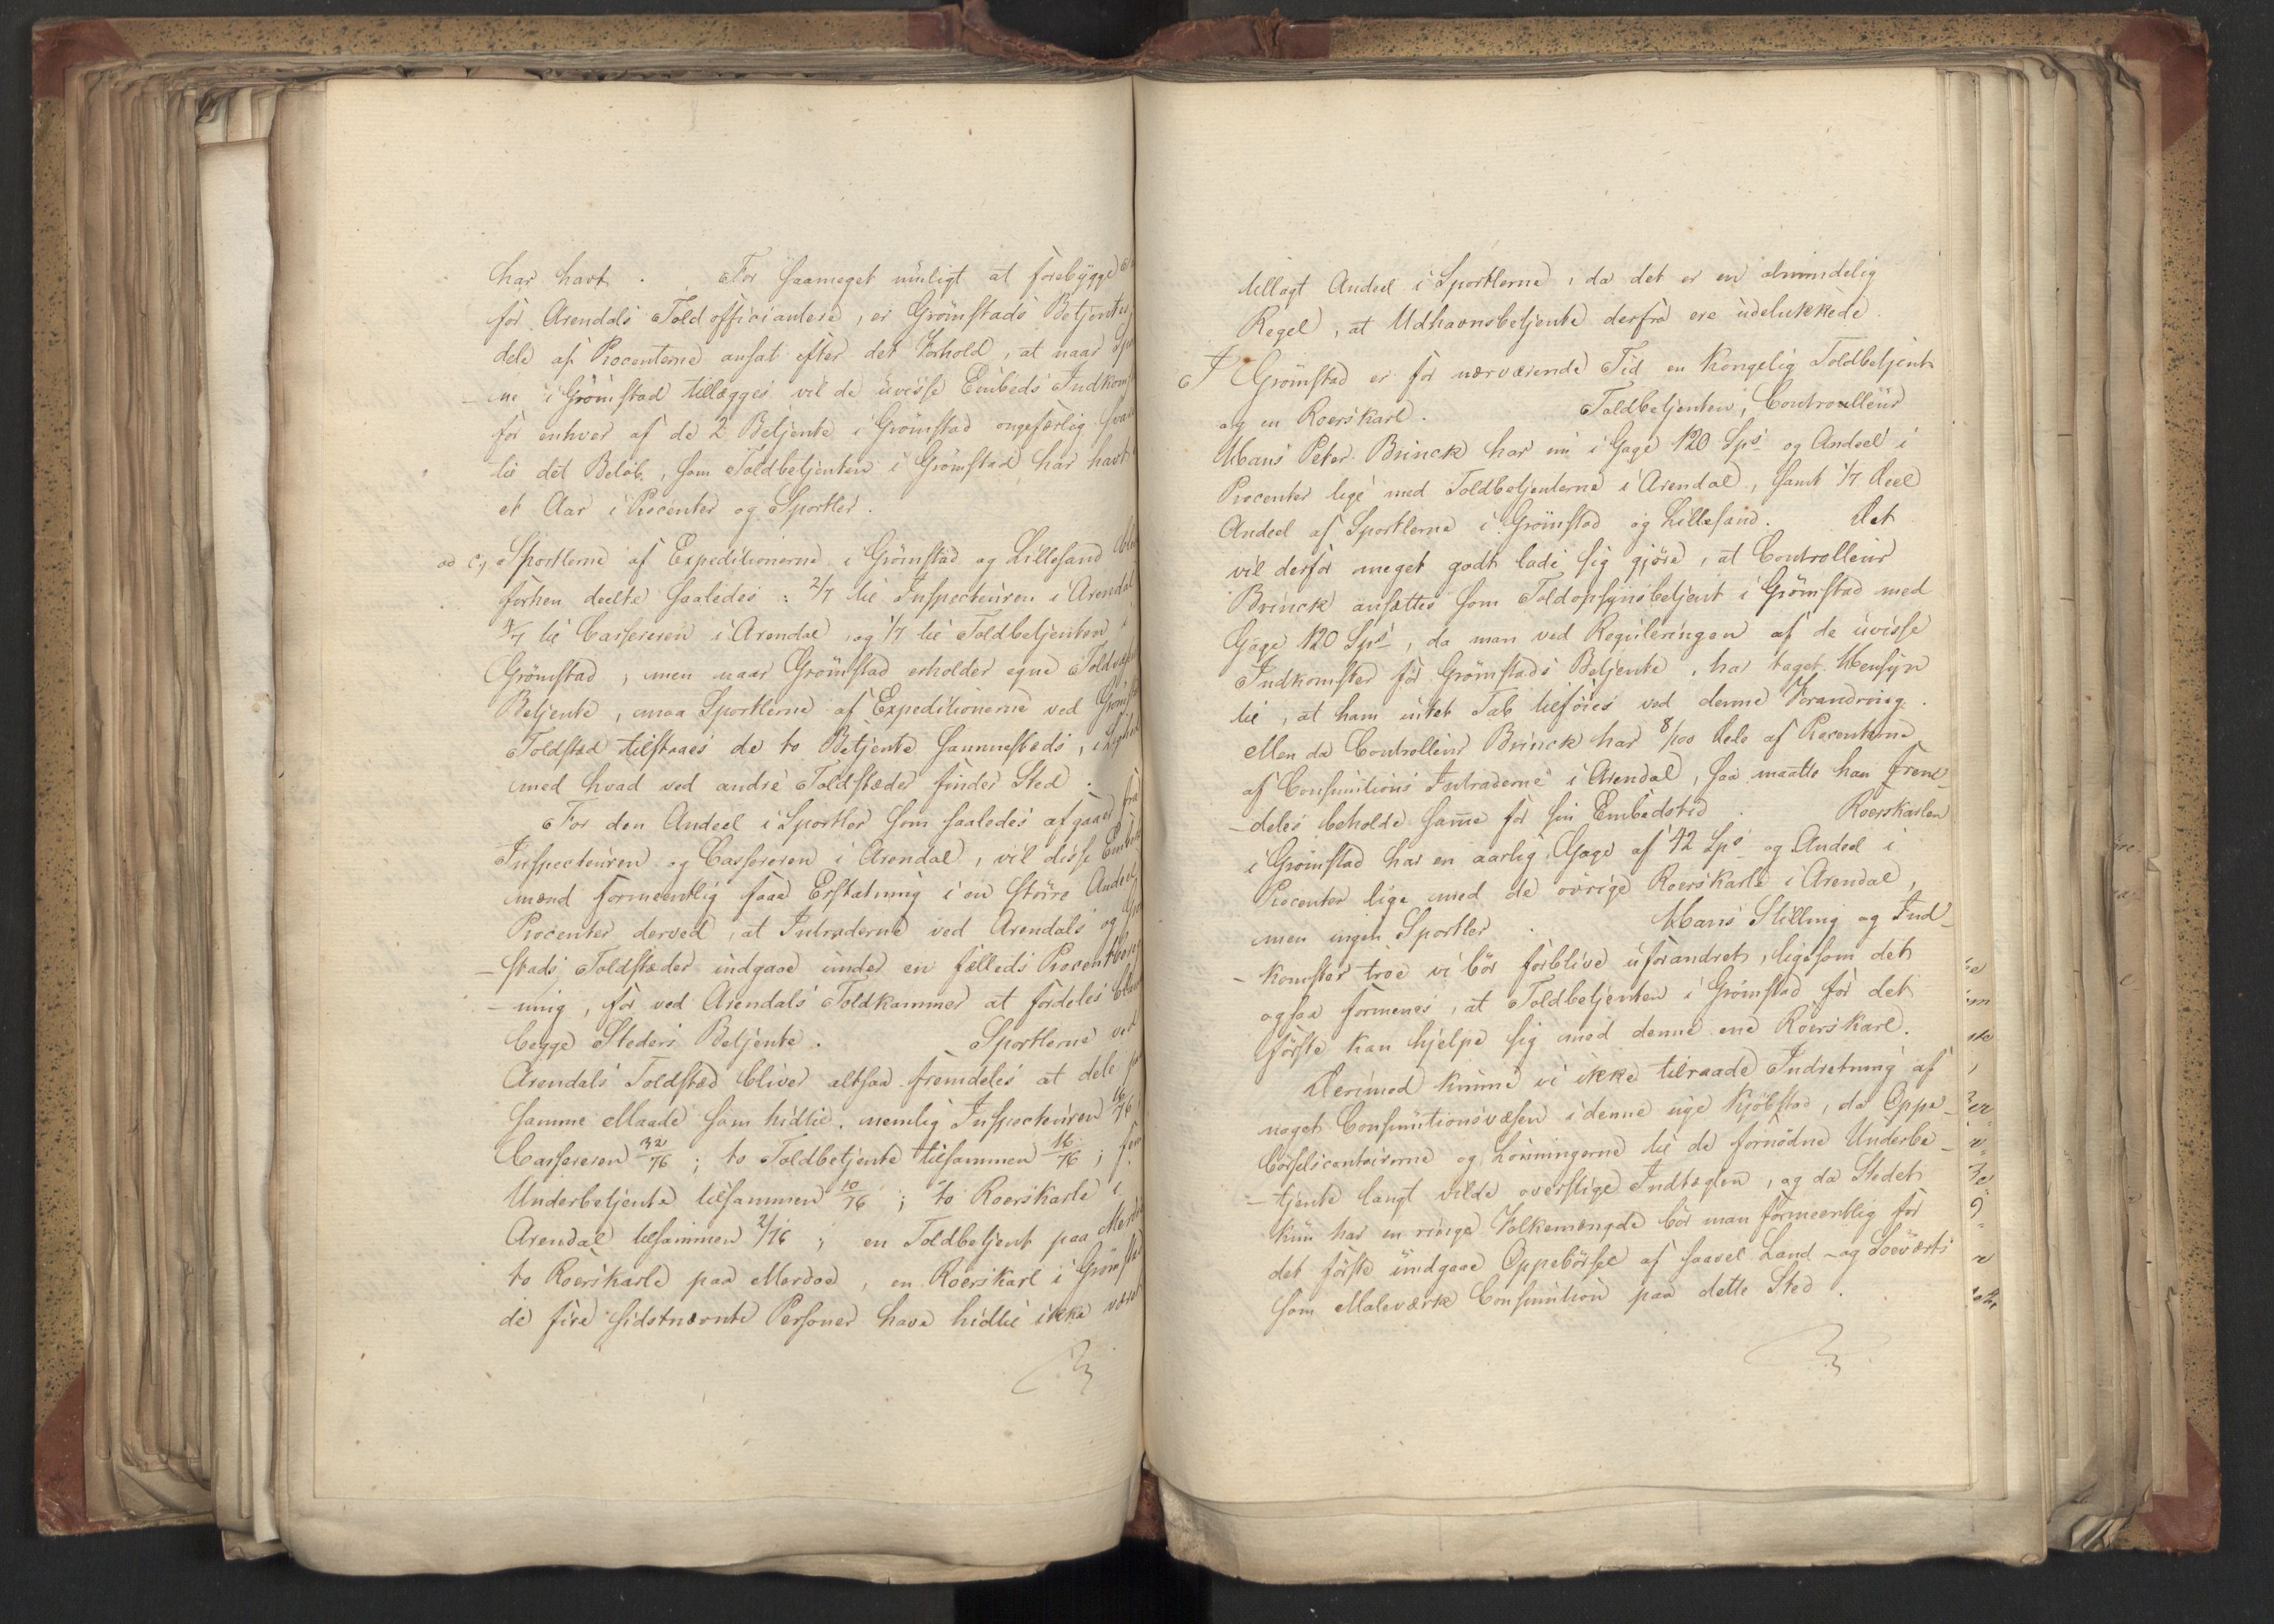 har havt. For saameget muligt at forebygge
for Arendals Toldofficiantere, er Grömstads Betjentes
dele af Procenterne ansat efter det Forhold, at naar
-ne i Grömstad tillægges vil de uvisse Embeds Indkom
for enhver af de 2 Betjente i Grömstad ongefærlig
til det Belöb, som Toldbetjenten i Grömstad har havt
et Aar i Procenter og Sportler.
ad c, Sportlerne af Expeditionerne i Grömstad og Lillesand
forhen deelte saaledes: 2/7 til Inspecteuren i Arendal
4/7 til Cassereren i Arendal, og 1/7 til Toldbetjenten i
Grömstad, men naar Grömstad erholder egne
Betjente, maa Sportlerne af Expeditionerne ved
Toldsted tilstaaes de to Betjente sammesteds,
med hvad ved andre Toldstæder finder Sted.
For den Andeel i Sportler som saaledes afgaaer fra
Inspecteuren og Cassereren i Arendal, vil disse
mænd formeentlig faae Erstatning i en större Andeel
Procenter derved, at Intraderne ved Arendals og
-stads Toldstæder indgaae under en fælleds
-ning, for ved Arendals Toldkammer at fordeles
begge Steders Betjente. Sportlerne ved
Arendals Toldsted bliver altsaa fremdeles at dele
samme Maade som hidtil, nemlig Inspecteuren 16/76
Cassereren 32/76; to Toldbetjente tilsammen 16/76;
Underbetjente tilsammen 10/76; to Roerskarle i
Arendal tilsammen 2/76; en Toldbetjent paa
to Roerskarle paa Merdoe, en Roerskarl i
de fire sidstnævnte Personer have hidtil ikke været
tillagt Andeel i Sportlerne, da det er en almindelig
Regel, at Udhavnsbetjente derfra ere udelukkede.
I Grömstad er for nærværende Tid en Kongelig Toldbetjent
og en Roerskarl. Toldbetjenten, Controulleur
Hans Peter Brinck har nu i Gage 120 Sps og Andeel i
Procenter lige med Toldbetjenterne i Arendal, samt 1/7 Deel
Andeel af Sportlerne i Grömstad og Lillesand. Det
vil derfor meget godt lade sig gjöre, at Controlleur
Brinck ansættes som Toldopsynsbetjent i Grömstad med
Gage 120 Sps, da man ved Reguleringen af de uvisse
Indkomster for Grömstads Betjente, har taget Hensyn
til, at ham intet Tab tilföies ved denne Forandring.
Men da Controlleur Brinck har 8/100 Dele af Procenterne
af Consumtions Intraderne i Arendal, saa maatte han frem-
-deles beholde samme for sin Embedstid. Roerskarlen
i Grömstad har en aarlig Gage af 42 Sps og Andeel i
Procenter lige med de övrige Roerskarle i Arendal,
men ingen Sportler. Hans Stilling og Ind-
-komster troe vi bör forblive uforandret, ligesom det
ogsaa formenes, at Toldbetjenten i Grömstad for det
förste kan hjelpe sig med denne ene Roerskarl.
Derimod kunne vi ikke tilraade Indretning af
noget Consumtionsvæsen i denne nye Kjöbstad, da Oppe-
börselscontoirerne og Lönningerne til de fornödne Underbe-
-tjente langt vilde overstige Indtægten, og da Stedet
kun har en ringe Folkemængde bör man formeentlig for
det förste undgaae Oppebörsel af saavel Land- og Söeværts
som Maleværk Consumtion paa dette Sted.